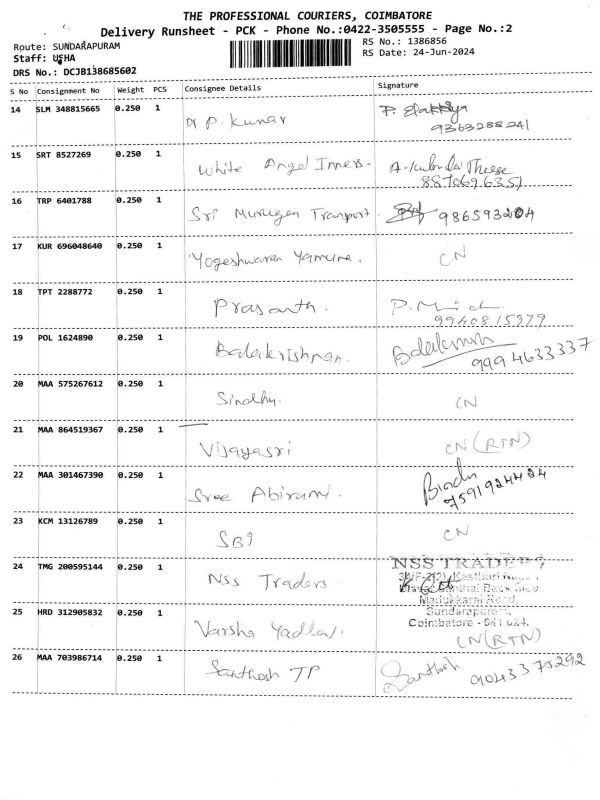 THE PROFESSIONAL COURIERS, COIMBATORE
Delivery Runsheet - PCK - Phone No.:0422-3505555 - Page No.:2
Route: SUNDARAPURAM
RS No.: 1386856
Staff: USHA
RS Date: 24-Jun-2024
DRS No.: DCJB138685602
S No Consignment No Weight PCS Consignee Details Signature
14 SLM 348815665 0.250 1 Dr P. Kumar P. Elakkiya
9363288241
15 SRT 8527269 0.250 1 White Angel Inners.
8870696357
16 TRP 6401788 0.250 1 Sri Murugan Transport. 986593204
17 KUR 696048640 0.250 1 Yogeshwaran Yamuna. CN
18 TPT 2288772 0.250 1 Prasanth.
9940815979
19 POL 1624890 0.250 1 Balakrishnan.
9994633337
20 MAA 575267612 0.250 1 Sindhu. CN
21 MAA 864519367 0.250 1 Vijayasri CN (RTN)
22 MAA 301467390 0.250 1 Sree Abirami. Bindu
7591924424
23 KCM 13126789 0.250 1 SBI CN
24 TMG 200595144 0.250 1 NSS Traders NSS TRADERS
Madukkarai Road,
Sundarapuram,
Coimbatore - 641 024.
25 HRD 312905832 0.250 1 Varsha Yadhav. CN (RTN)
26 MAA 703986714 0.250 1 Santhosh TP Santhosh 9043375292